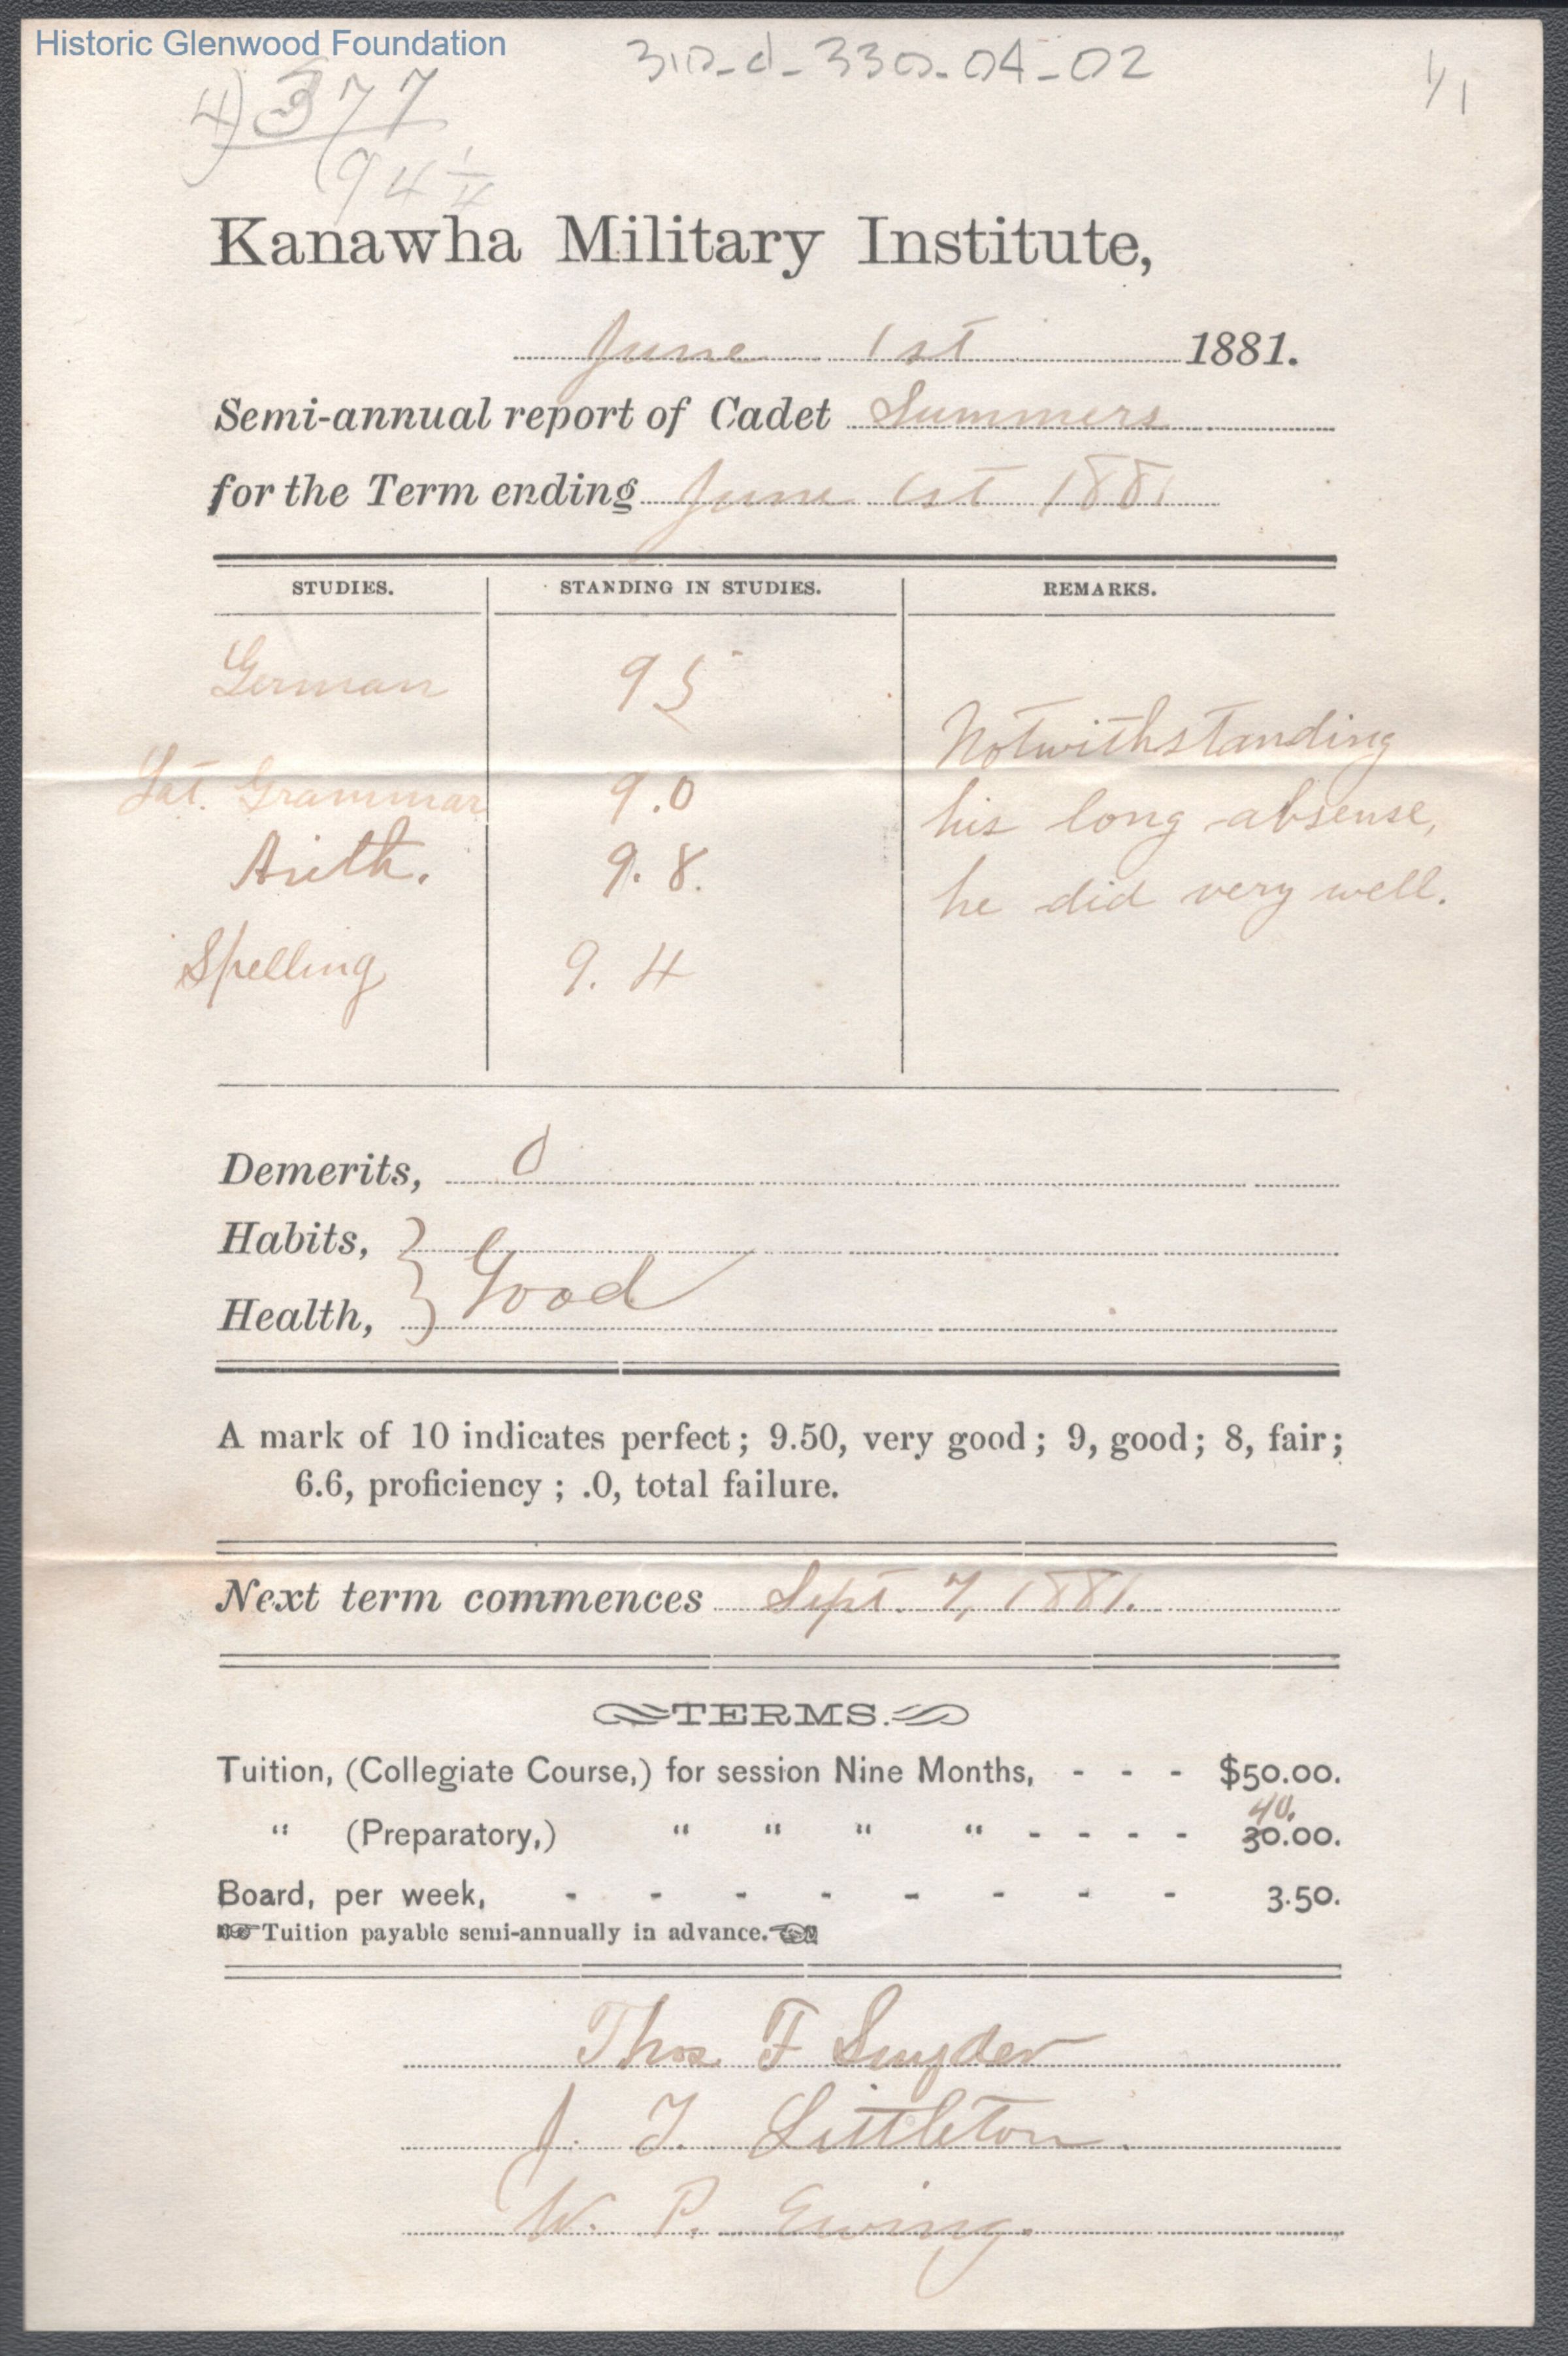 Historic Glenwood Foundation
310-d-330-04-02
1/1
4)377
94 1/4
Kanawha Military Institute,
June 1st 1881.
Semi-annual report of Cadet Summers
for the Term ending June 1st 1881
STUDIES. STANDING IN STUDIES. REMARKS.
German 95
Notwithstanding
Lat. Grammar 9.0
his long absense,
Arith. 9.8.
he did very well.
Spelling 9.4
Demerits, 0
Habits,
Good
Health,
A mark of 10 indicates perfect; 9.50, very good; 9, good; 8, fair;
6.6, proficiency; .0, total failure.
Next term commences Sept. 7, 1881.
TERMS.
Tuition, (Collegiate Course,) for session Nine Months, - - - $50.00.
40.
" (Preparatory,) " " " " - - - - 30.00.
Board, per week, - - - - - - - - 3.50.
☞Tuition payable semi-annually in advance.☜
Thos. F Snyder
J. T. Littleton.
W. P. Ewing.